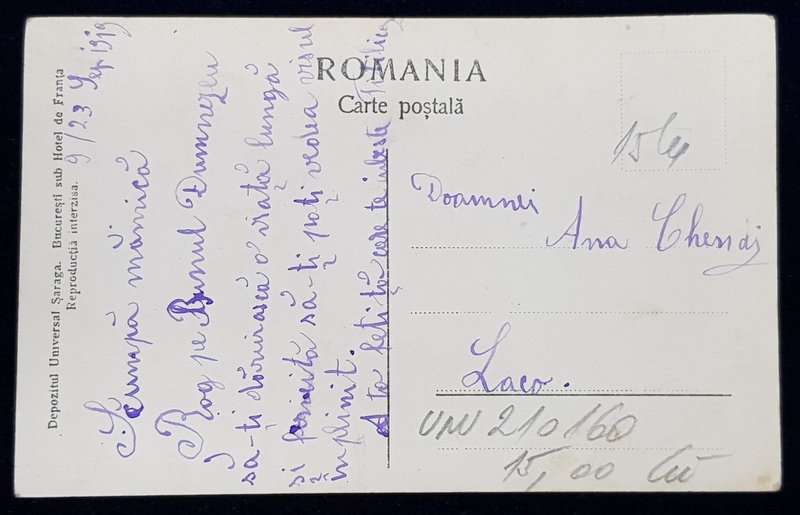 ROMANIA
Carte poștală
Depozitul Universal Șaraga. București sub Hotel de Franța
Reproducția interzisa.
9/23 Sep. 1919
Scumpă mămică
Rog pe Bunul Dumnezeu
să-ți dăruiască o viață lungă
și fericită să-ți poți vedea visul
înplinit.
A ta fetiță care te iubește
Doamnei
Ana
Laco.
UNV 210160
15,00